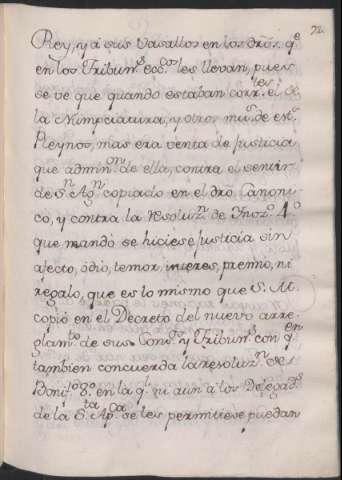 72.
Rey, y á sus Vasallos en los dros. qe
en los Tribuns. eccos. les llevan, pues
se ve que quando estaban corrtes. el de
la Nunciatura, y otros mus. de estos.
Reynos, mas era venta de Justicia
que adminon. de ella, contra el sentir
de Sn. Agn. copiado en el dro Canoni-
co, y contra la resoluzn. de Inozo. 4o.
que mandó se hiciese justicia sin
afecto, ódio, temor, interes, premio, ni
regalo, que es lo mismo que S. M.
copió en el Decreto del nuevo arre-
glamto. de sus Consos. y Tribuns. con qen
tambien concuerda la resoluzn. de
Bonifo. 8o. en la ql. ni aun a los Delegads.
de la Sta. Apca. se les permitiese puedan